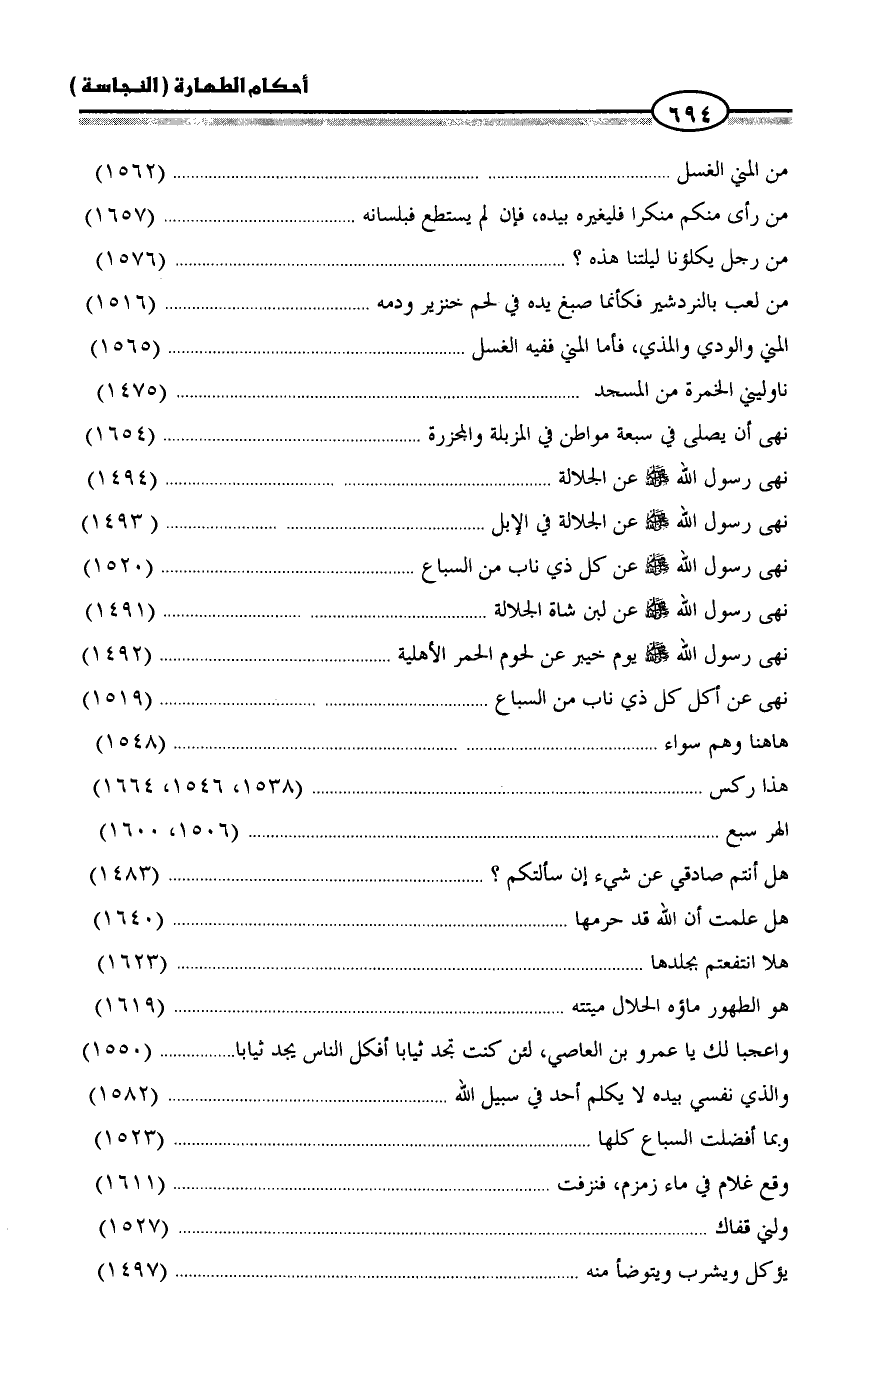 أحكام الطهارة (النجاسة)
٦٩٤
من المني الغسل ........ (١٥٦٢)
من رأى منكم منكرا فليغيره بيده، فإن لم يستطع فبلسانه ........ (١٦٥٧)
من رجل يكلؤنا ليلتنا هذه ؟ ........ (١٥٧٦)
من لعب بالنردشير فكأنما صبغ يده في لحم خنزير ودمه ........ (١٥١٦)
المني والودي والمذي، فأما المني ففيه الغسل ........ (١٥٦٥)
ناوليني الخمرة من المسجد ........ (١٤٧٥)
نهى أن يصلى في سبعة مواطن في المزبلة والمجزرة ........ (١٦٥٤)
نهى رسول الله ﷺ عن الجلالة ........ (١٤٩٤)
نهى رسول الله ﷺ عن الجلالة في الإبل ........ (١٤٩٣)
نهى رسول الله ﷺ عن كل ذي ناب من السباع ........ (١٥٢٠)
نهى رسول الله ﷺ عن لبن شاة الجلالة ........ (١٤٩١)
نهى رسول الله ﷺ يوم خيبر عن لحوم الحمر الأهلية ........ (١٤٩٢)
نهى عن أكل كل ذي ناب من السباع ........ (١٥١٩)
هاهنا وهم سواء ........ (١٥٤٨)
هذا ركس ........ (١٥٣٨، ١٥٤٦، ١٦٦٤)
الهر سبع ........ (١٥٠٦، ١٦٠٠)
هل أنتم صادقي عن شيء إن سألتكم ؟ ........ (١٤٨٣)
هل علمت أن الله قد حرمها ........ (١٦٤٠)
هلا انتفعتم بجلدها ........ (١٦٢٣)
هو الطهور ماؤه الحلال ميتته ........ (١٦١٩)
واعجبا لك يا عمرو بن العاصي، لئن كنت تجد ثيابا أفكل الناس يجد ثيابا........ (١٥٥٠)
والذي نفسي بيده لا يكلم أحد في سبيل الله ........ (١٥٨٢)
وبما أفضلت السباع كلها ........ (١٥٢٣)
وقع غلام في ماء زمزم، فنزفت ........ (١٦١١)
ولني قفاك ........ (١٥٢٧)
يؤكل ويشرب ويتوضأ منه ........ (١٤٩٧)